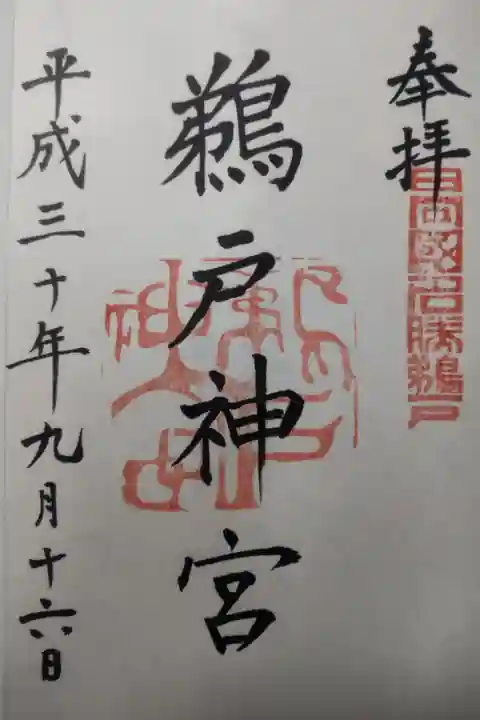 奉拝
日向國名勝鵜戸
鵜戸神宮
平成三十年九月十六日